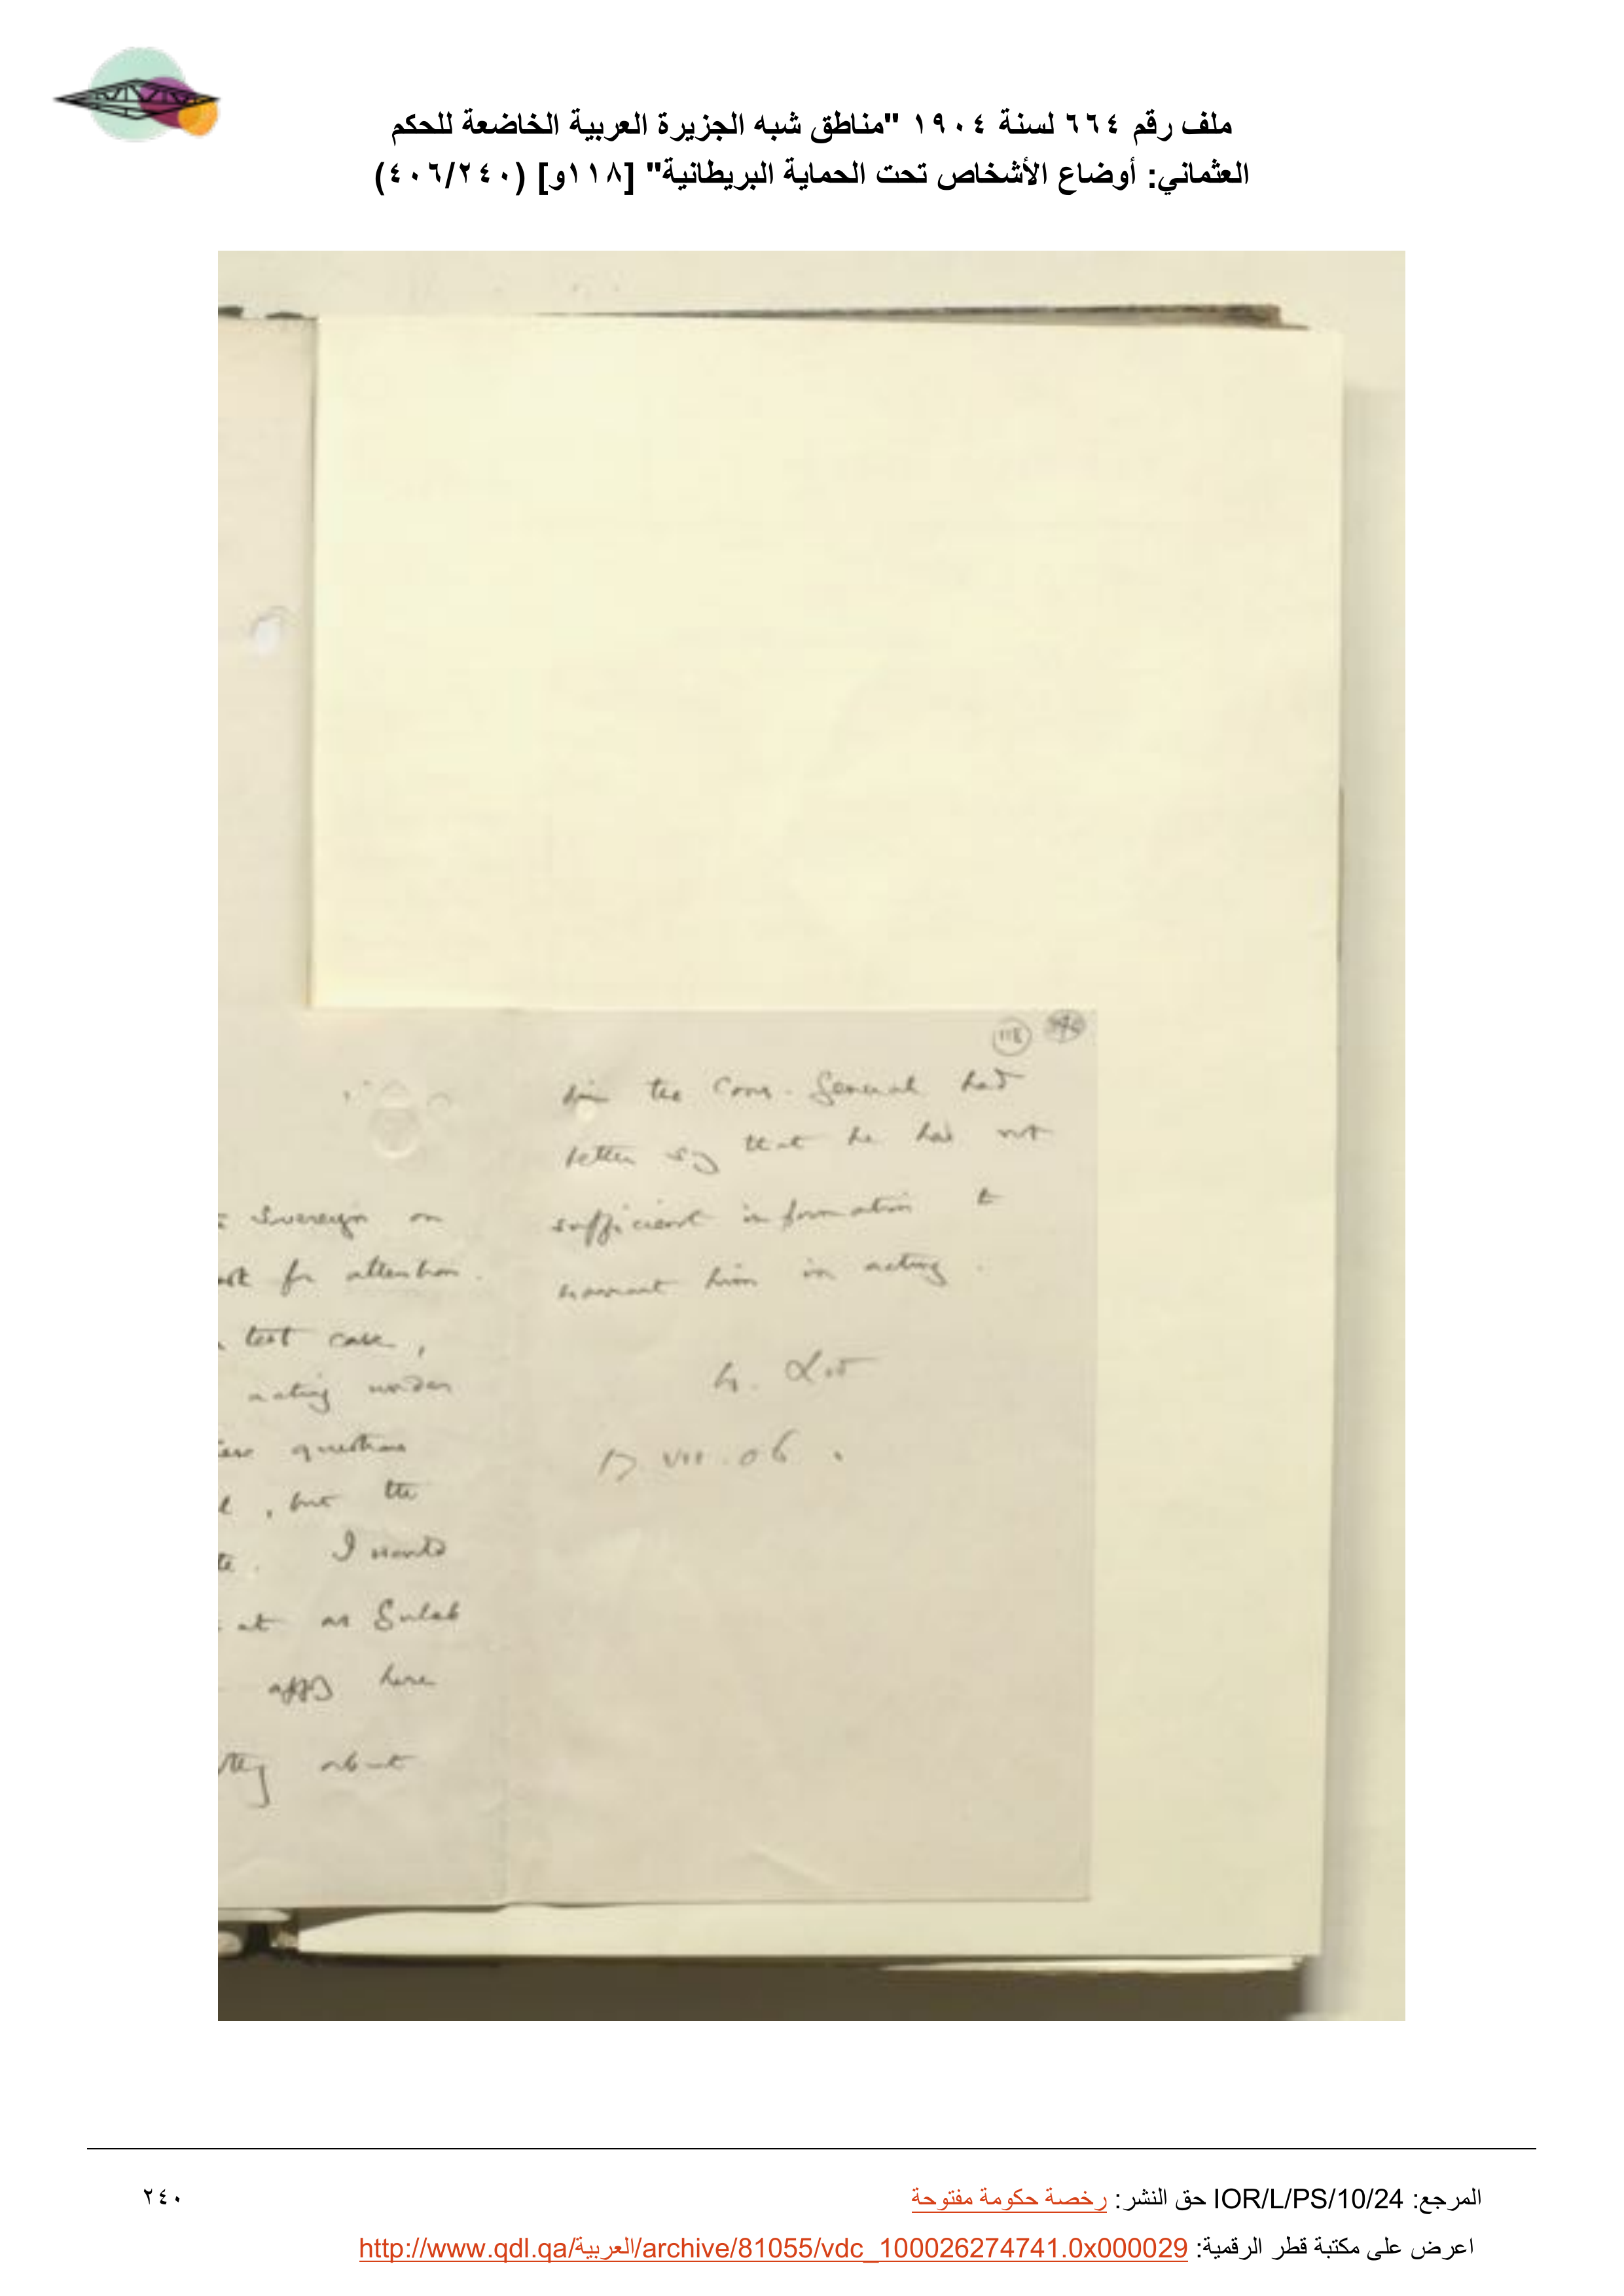 ملف رقم ٦٦٤ لسنة ١٩٠٤ "مناطق شبه الجزيرة العربية الخاضعة للحكم
العثماني: أوضاع الأشخاص تحت الحماية البريطانية" [١١٨و] (٤٠٦/٢٤٠)
118
Sovereign on
for attention.
test case,
acting under
questions
, but the
I would
at as Gulab
apply here
about
him the Cons. General had
better say that he has not
sufficient information to
warrant him in acting.
17 VII.06.
المرجع: IOR/L/PS/10/24 حق النشر: رخصة حكومة مفتوحة
٢٤٠
اعرض على مكتبة قطر الرقمية: http://www.qdl.qa/العربية/archive/81055/vdc_100026274741.0x000029